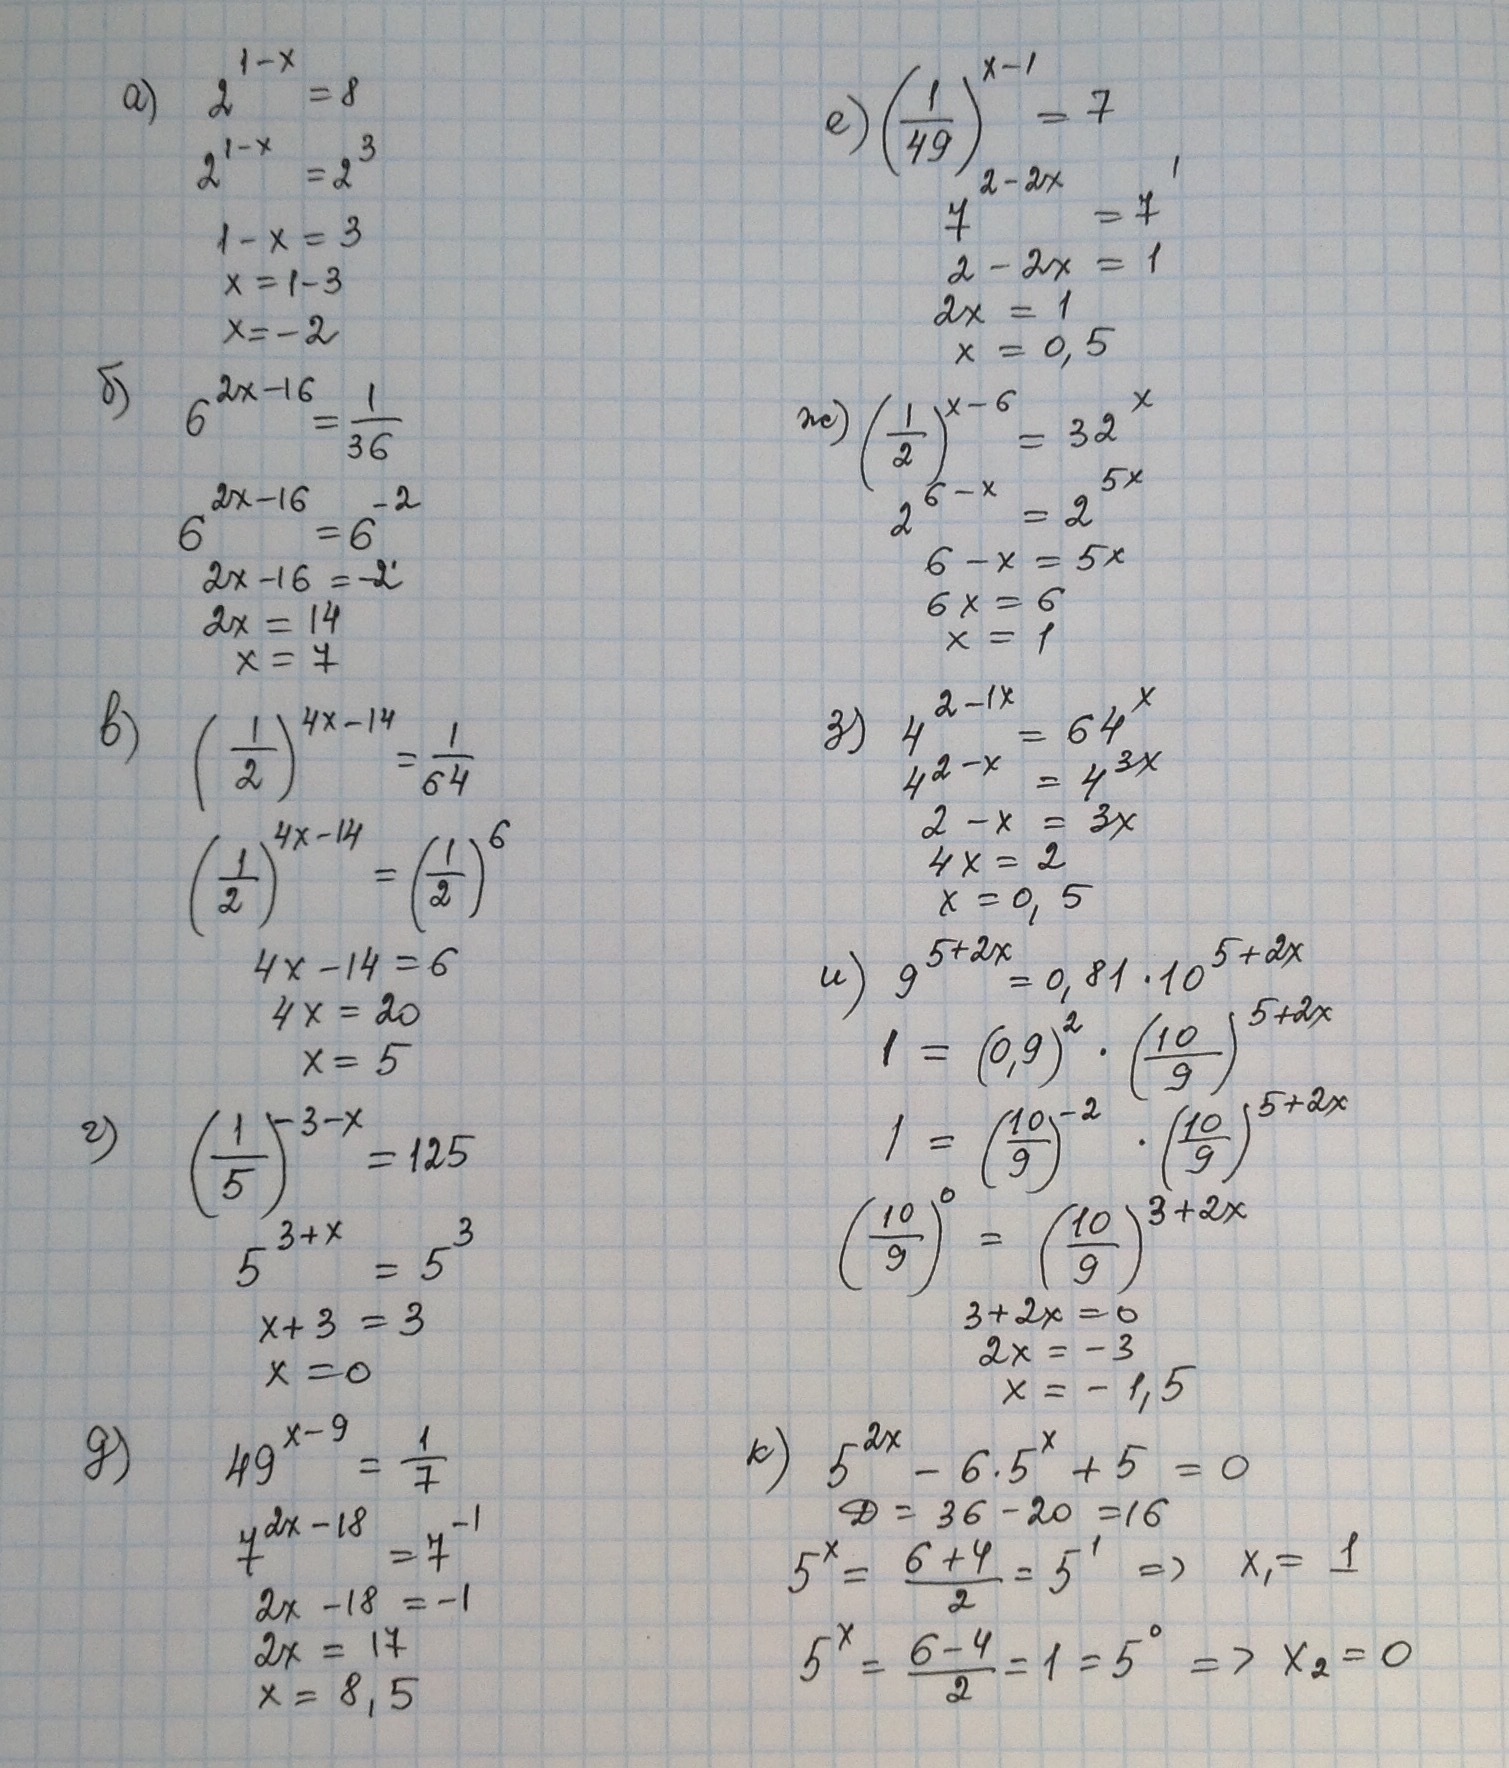 а) 2^(1-x) = 8
2^(1-x) = 2^3
1-x = 3
x = 1-3
x = -2
б) 6^(2x-16) = 1/36
6^(2x-16) = 6^(-2)
2x-16 = -2
2x = 14
x = 7
в) (1/2)^(4x-14) = 1/64
(1/2)^(4x-14) = (1/2)^6
4x-14 = 6
4x = 20
x = 5
г) (1/5)^(-3-x) = 125
5^(3+x) = 5^3
x+3 = 3
x = 0
д) 49^(x-9) = 1/7
7^(2x-18) = 7^(-1)
2x-18 = -1
2x = 17
x = 8,5
е) (1/49)^(x-1) = 7
7^(2-2x) = 7^1
2-2x = 1
2x = 1
x = 0,5
ж) (1/2)^(x-6) = 32^x
2^(6-x) = 2^(5x)
6-x = 5x
6x = 6
x = 1
з) 4^(2-1x) = 64^x
4^(2-x) = 4^(3x)
2-x = 3x
4x = 2
x = 0,5
и) 9^(5+2x) = 0,81·10^(5+2x)
1 = (0,9)^2 · (10/9)^(5+2x)
1 = (10/9)^(-2) · (10/9)^(5+2x)
(10/9)^0 = (10/9)^(3+2x)
3+2x = 0
2x = -3
x = -1,5
к) 5^(2x) - 6·5^x + 5 = 0
D = 36-20 = 16
5^x = (6+4)/2 = 5^1 => x₁ = 1
5^x = (6-4)/2 = 1 = 5^0 => x₂ = 0